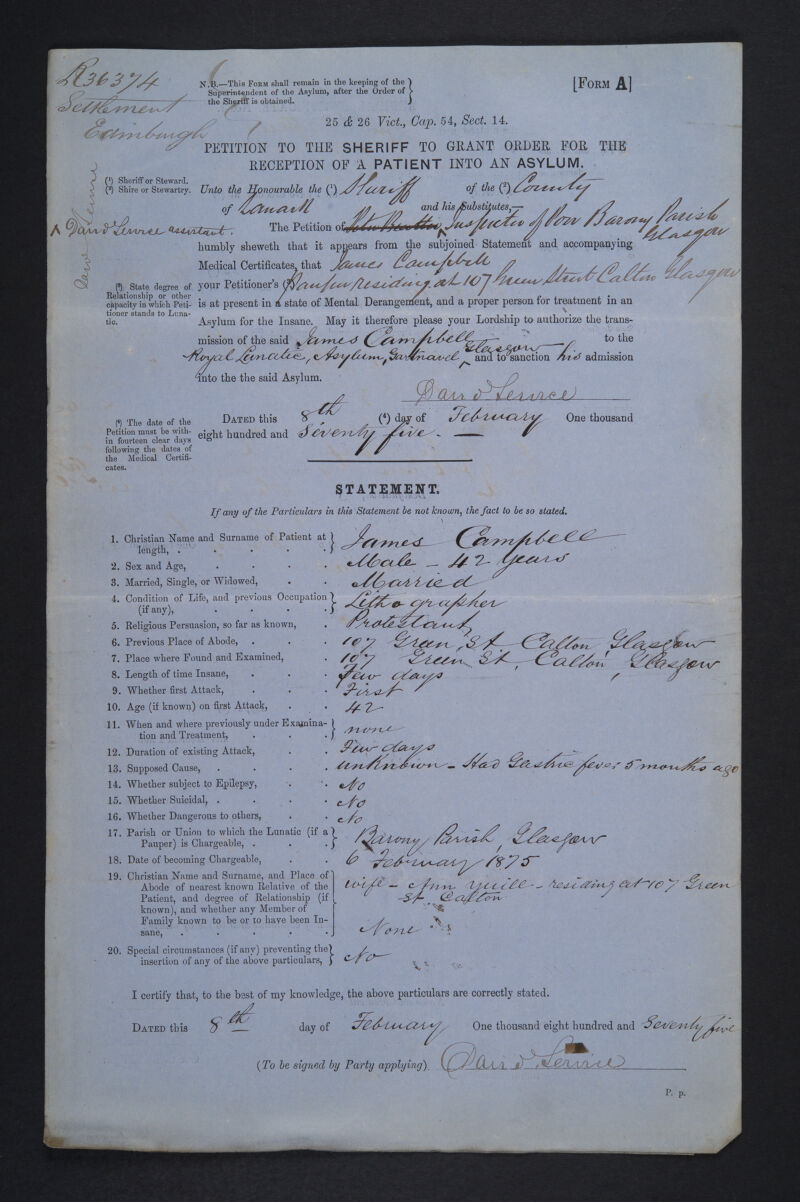 R36374
Settlement
Edinburgh
N.B.—This Form shall remain in the keeping of the
Superintendent of the Asylum, after the Order of
the Sheriff is obtained.
[Form A]
25 & 26 Vict., Cap. 54, Sect. 14.
PETITION TO THE SHERIFF TO GRANT ORDER FOR THE
RECEPTION OF A PATIENT INTO AN ASYLUM.
(¹) Sheriff or Steward.
(²) Shire or Stewartry.
Unto the Honourable the (¹) Sheriff of the (²) County
of Lanark and his Substitutes,—
David Service
^ David Service assistant.
The Petition of ^ Inspector of Poor Barony Parish Glasgow
humbly sheweth that it appears from the subjoined Statement and accompanying
Medical Certificates, that James Campbell
(³) State degree of
Relationship or other
capacity in which Peti-
tioner stands to Luna-
tic.
your Petitioner's (³) Pauper residing at 107 Green Street Calton Glasgow
is at present in a state of Mental Derangement, and a proper person for treatment in an
Asylum for the Insane. May it therefore please your Lordship to authorize the trans-
mission of the said James Campbell to the
Royal Lunatic Asylum, Gartnavel ^ Glasgow and to sanction his admission
into the the said Asylum.
David Service
(⁴) The date of the
Petition must be with-
in fourteen clear days
following the dates of
the Medical Certifi-
cates.
Dated this 8th (⁴) day of February One thousand
eight hundred and Seventy five. —
STATEMENT.
If any of the Particulars in this Statement be not known, the fact to be so stated.
1. Christian Name and Surname of Patient at
length, . . . . . James Campbell
2. Sex and Age, . . . . Male – 42 years
3. Married, Single, or Widowed, . . Married
4. Condition of Life, and previous Occupation
(if any), . . . . Lithographer
5. Religious Persuasion, so far as known, . Protestant
6. Previous Place of Abode, . . . 107 Green St Calton Glasgow
7. Place where Found and Examined, . 107 Green St, Calton, Glasgow
8. Length of time Insane, . . . Few days
9. Whether first Attack, . . . First
10. Age (if known) on first Attack, . . 42
11. When and where previously under Examina-
tion and Treatment, . . . none
12. Duration of existing Attack, . . Few days
13. Supposed Cause, . . . . unknown – Had Gastric fever 5 months ago
14. Whether subject to Epilepsy, . . No
15. Whether Suicidal, . . . . No
16. Whether Dangerous to others, . . No
17. Parish or Union to which the Lunatic (if a
Pauper) is Chargeable, . . . Barony Parish, Glasgow
18. Date of becoming Chargeable, . . 6 February 1875
19. Christian Name and Surname, and Place of
Abode of nearest known Relative of the
Patient, and degree of Relationship (if
known), and whether any Member of
Family known to be or to have been In-
sane, . . . . .
wife – Ann Quill – residing at 107 Green
St. Calton
None
20. Special circumstances (if any) preventing the
insertion of any of the above particulars, No
I certify that, to the best of my knowledge, the above particulars are correctly stated.
Dated this 8th day of February One thousand eight hundred and Seventy five
(To be signed by Party applying) David Service
P. p.